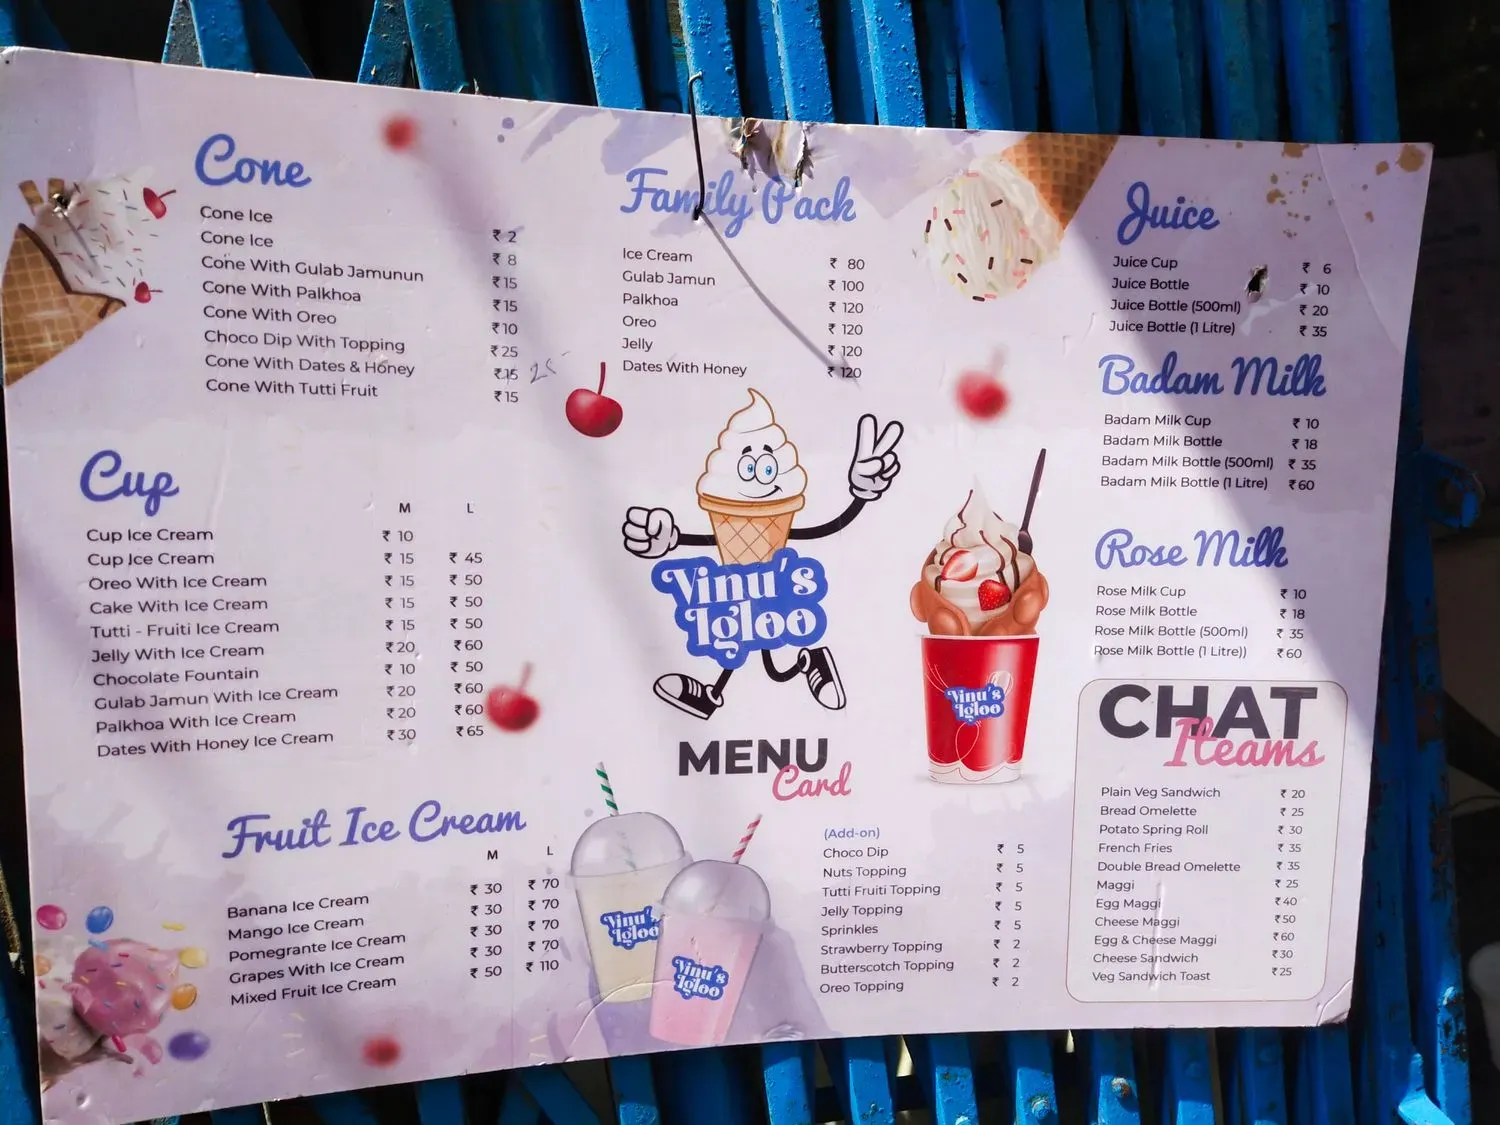 Cone
Cone Ice ₹ 2
Cone Ice ₹ 8
Cone With Gulab Jamunun ₹15
Cone With Palkhoa ₹15
Cone With Oreo ₹10
Choco Dip With Topping ₹25
Cone With Dates & Honey ₹15 25
Cone With Tutti Fruit ₹15
Cup
M L
Cup Ice Cream ₹ 10
Cup Ice Cream ₹ 15 ₹ 45
Oreo With Ice Cream ₹ 15 ₹ 50
Cake With Ice Cream ₹ 15 ₹ 50
Tutti - Fruiti Ice Cream ₹ 15 ₹ 50
Jelly With Ice Cream ₹20 ₹60
Chocolate Fountain ₹ 10 ₹ 50
Gulab Jamun With Ice Cream ₹20 ₹60
Palkhoa With Ice Cream ₹20 ₹60
Dates With Honey Ice Cream ₹30 ₹65
Fruit Ice Cream
M L
Banana Ice Cream ₹ 30 ₹ 70
Mango Ice Cream ₹ 30 ₹ 70
Pomegrante Ice Cream ₹ 30 ₹ 70
Grapes With Ice Cream ₹ 30 ₹ 70
Mixed Fruit Ice Cream ₹ 50 ₹ 110
Family Pack
Ice Cream ₹ 80
Gulab Jamun ₹ 100
Palkhoa ₹ 120
Oreo ₹ 120
Jelly ₹ 120
Dates With Honey ₹ 120
Vinu's
Igloo
MENU
Card
Vinu's
Igloo
Vinu's
Igloo
Vinu's
Igloo
(Add-on)
Choco Dip ₹ 5
Nuts Topping ₹ 5
Tutti Fruiti Topping ₹ 5
Jelly Topping ₹ 5
Sprinkles ₹ 5
Strawberry Topping ₹ 2
Butterscotch Topping ₹ 2
Oreo Topping ₹ 2
Juice
Juice Cup ₹ 6
Juice Bottle ₹ 10
Juice Bottle (500ml) ₹ 20
Juice Bottle (1 Litre) ₹ 35
Badam Milk
Badam Milk Cup ₹ 10
Badam Milk Bottle ₹ 18
Badam Milk Bottle (500ml) ₹ 35
Badam Milk Bottle (1 Litre) ₹60
Rose Milk
Rose Milk Cup ₹ 10
Rose Milk Bottle ₹ 18
Rose Milk Bottle (500ml) ₹ 35
Rose Milk Bottle (1 Litre)) ₹60
CHAT
Iteams
Plain Veg Sandwich ₹ 20
Bread Omelette ₹ 25
Potato Spring Roll ₹ 30
French Fries ₹ 35
Double Bread Omelette ₹ 35
Maggi ₹ 25
Egg Maggi ₹40
Cheese Maggi ₹50
Egg & Cheese Maggi ₹60
Cheese Sandwich ₹30
Veg Sandwich Toast ₹25